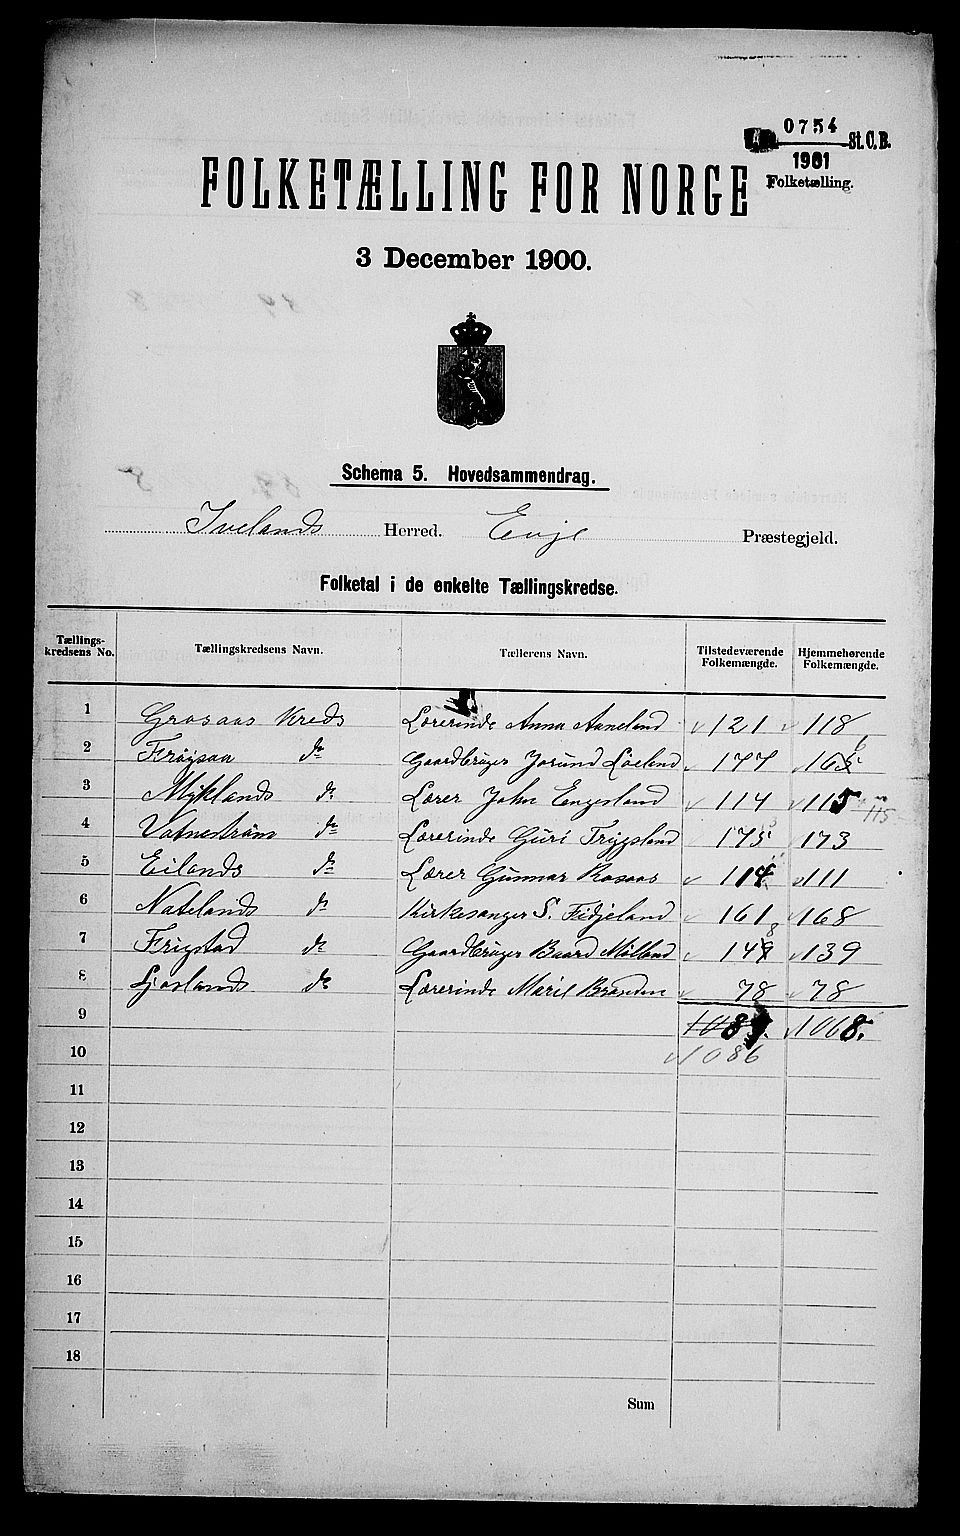 0754
St. C. B.
1901
Folketælling.
FOLKETÆLLING FOR NORGE
3 December 1900.
Schema 5. Hovedsammendrag.
Ivelands Herred. Evje Præstegjeld.
Folketal i de enkelte Tællingskredse.
Tællings-kredsens No. Tællingskredsens Navn. Tællerens Navn. Tilstedeværende Folkemængde. Hjemmehørende Folkemængde.
1 Grosaas Kreds Lærerinde Anna Aaneland 121 118
2 Frøysaa do Gaardbruger Jorund Løland 177
3 Myklands do Lærer John Engesland 114 115 115
4 Vatnestrøm do Lærerinde Guri Frigsland 175 173
5 Eilands do Lærer Gunnar Rosaas 114 111
6 Natelands do Kirkesanger S. Fidjeland 161 168
7 Frigstad do Gaardbruger Baard Mølland 139
8 Ljoslands do Lærerinde Marie Branden 78 78
9 1068.
10 1086
11
12
13
14
15
16
17
18
Sum